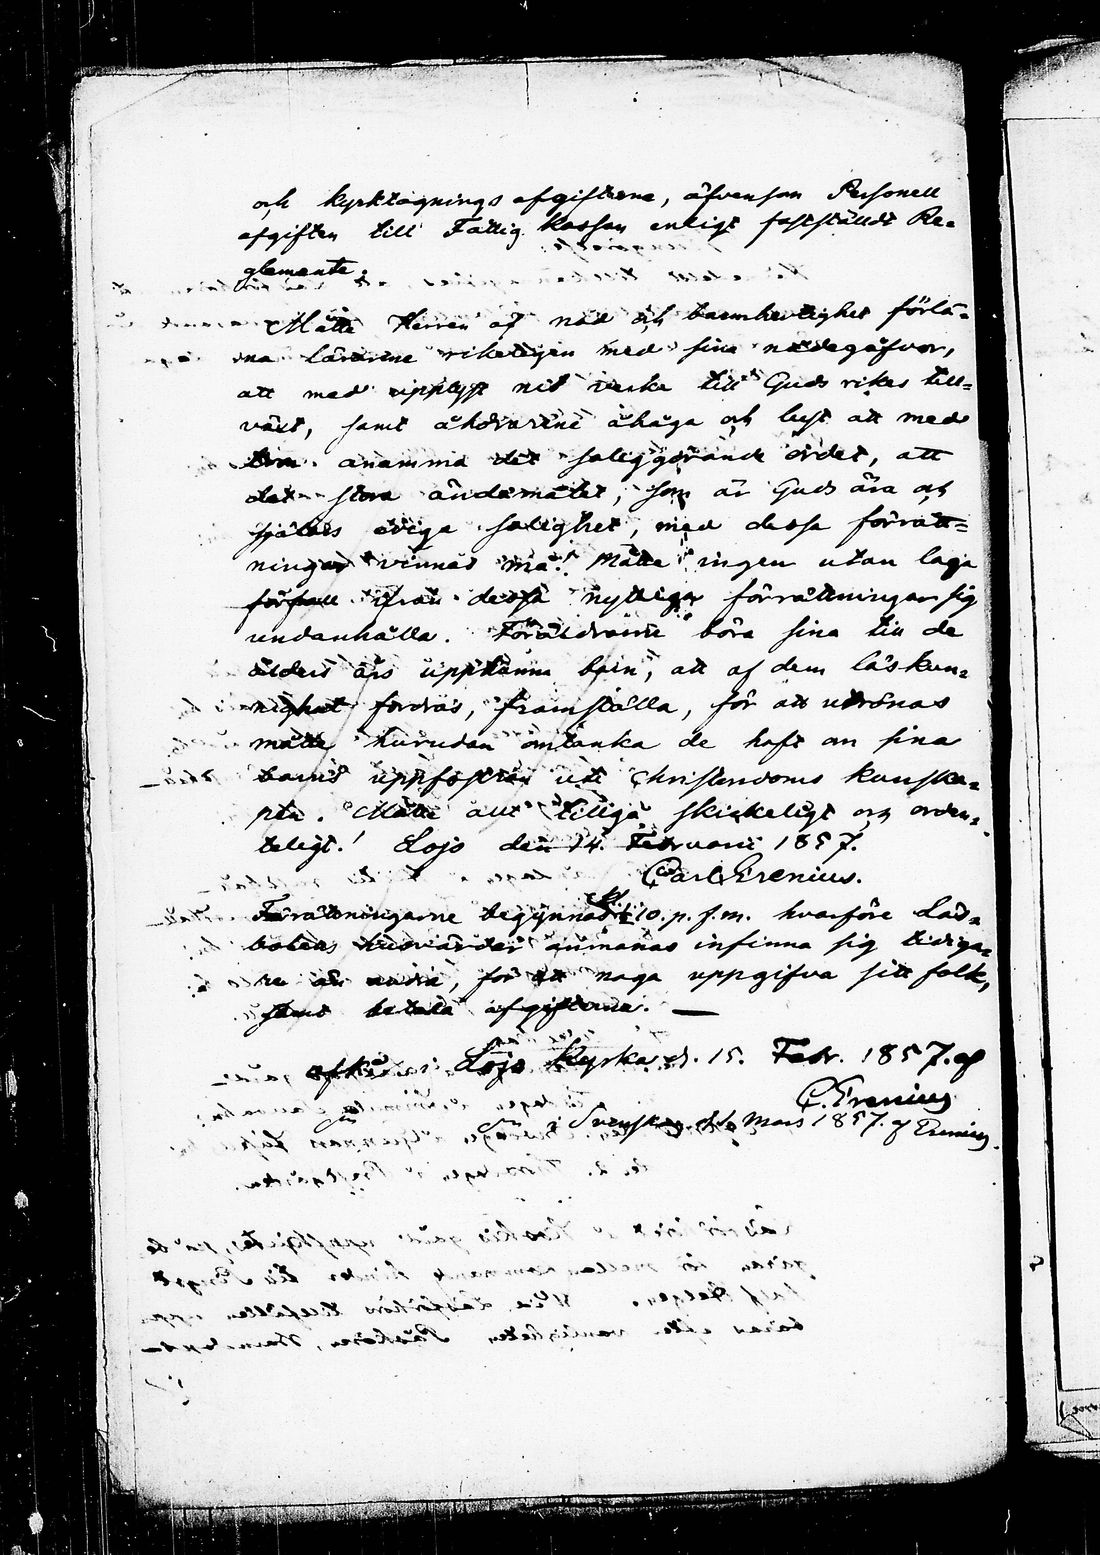 och kyrktagnings afgifterne, äfvensom Personell
afgiften till Fattig Kassan enligt fastställdt Re=
glemente.
Måtte Herren af nåd och barmhertighet förlä=
na lärarne rikeligen med sina nådegåfvor,
att med upplyst nit verka till Guds rikes till=
växt, samt åhörarene åhåga och lust att med
tron anamma det saliggörande ordet, att
det stora ändamålet, som är Guds ära och
själars eviga salighet, med dessa förrätt=
ningar vinnas må! Måtte ingen utan laga
förfall ifrån dessa nyttiga förrättningar sig
undanhålla. Föräldrarne böra sina till de
ålders års uppkomna barn, att af dem läskun=
nighet fordras, framställa, för att utrönas
måtte hurudan omtanka de haft om sina
barns uppfostran uti Christendoms kunska=
per. Måtte allt tillgå skickeligt och orden=
teligt! Lojo den 14 Februarii 1857.
Carl Grenius.
Förrättningarne begynnas kl 10. f.m. hvarföre
infinna sig tidiga=
re än andra, för att noga uppgifva sitt folk,
samt betala afgifterna. —
i Lojo Kyrka d. 15. Febr. 1857. af
C. Grenius
i Svenska Mars 1857. af Grenius.